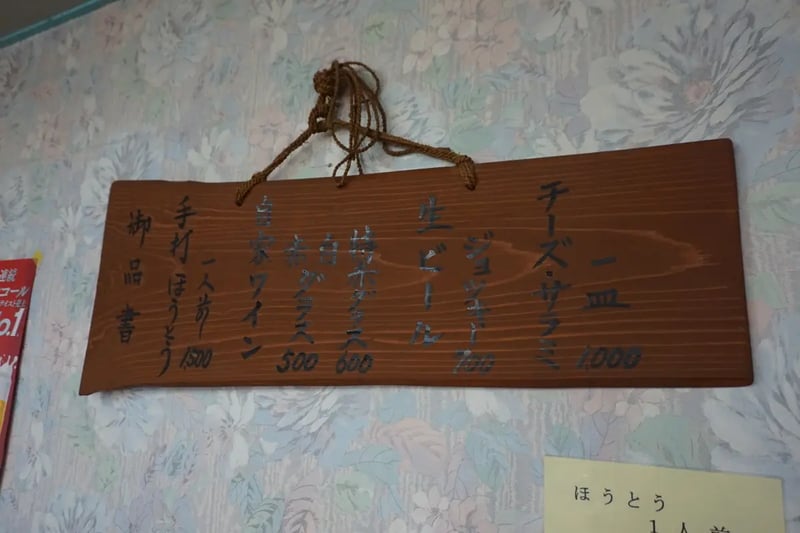 御品書
手打ほうとう
一人前 1,500
自家ワイン
白
赤 グラス 500
特赤グラス 600
生ビール
ジョッキー 700
チーズ・サラミ
一皿 1,000
連続
コール
o.1
ほうとう
1人前